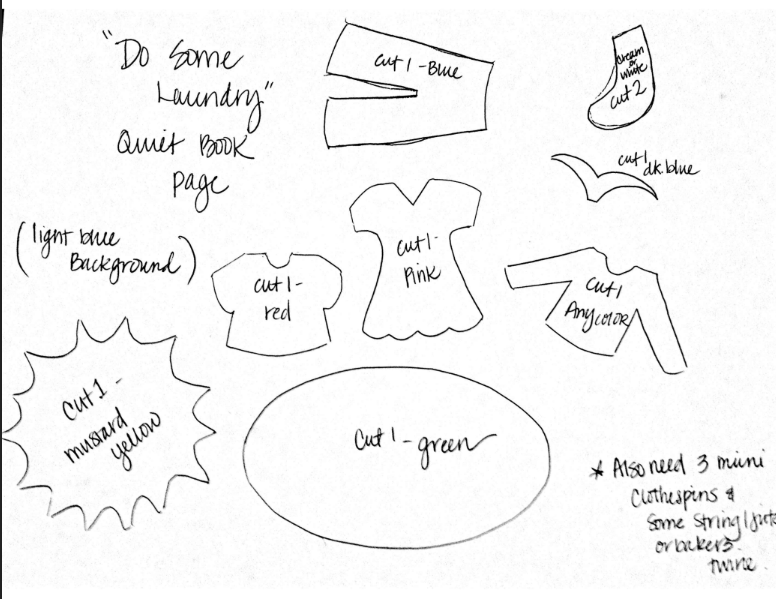 "Do Some
Laundry"
Quiet Book
page
(light blue
Background)
cut 1 - Blue
cream
or
white
cut 2
cut 1
dk. blue
cut 1 -
pink
cut 1 -
red
cut 1
Any color
cut 1 -
mustard
yellow
cut 1 - green
* Also need 3 mini
clothespins &
some string/jute
or bakers
twine.